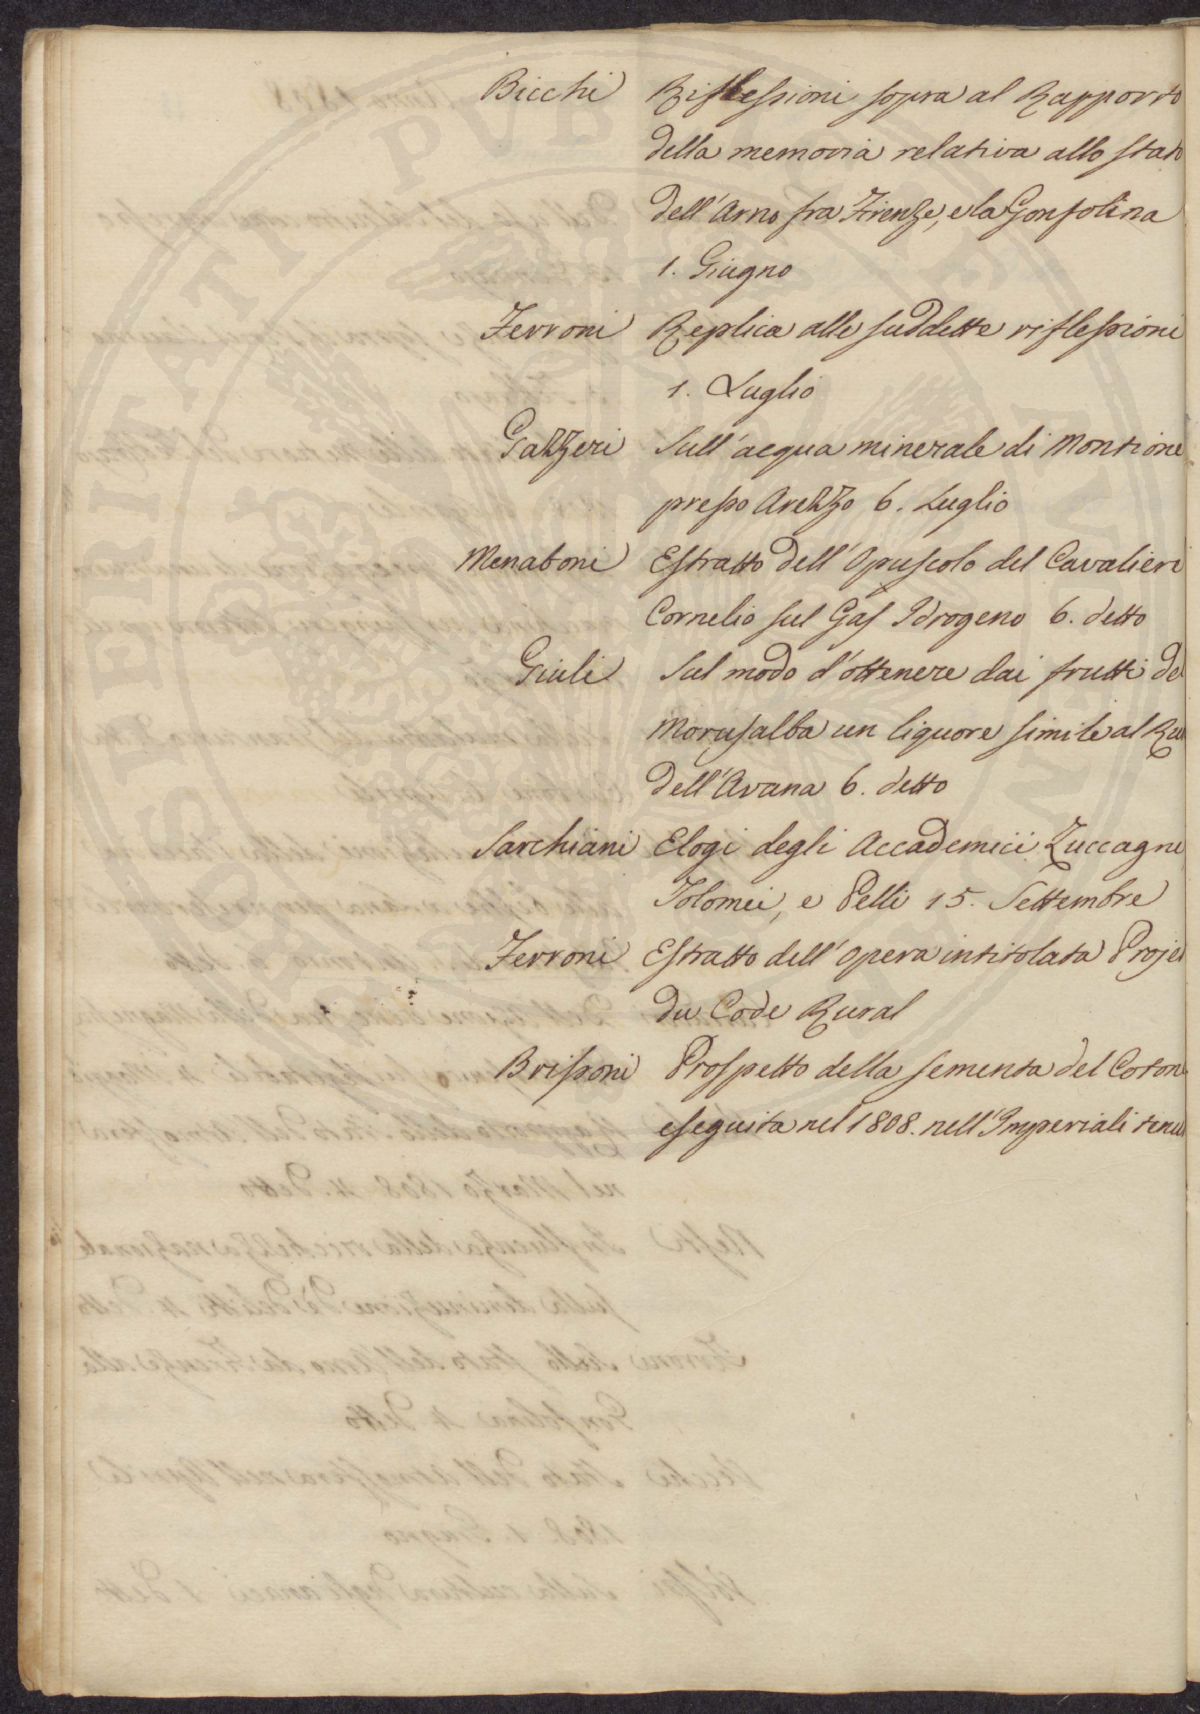 Bicchi Riflessioni sopra al Rapporto
della memoria relativa allo stato
dell'Arno fra Firenze, e la Gonfolina
1. Giugno
Ferroni Replica alle suddette riflessioni
1. Luglio
Gazzeri Sull'acqua minerale di Montione
presso Arezzo 6. Luglio
Menaboni Estratto dell'Opuscolo del Cavalieri
Cornelio sul Gas Idrogeno 6. detto
Giuli Sul modo d'ottenere dai frutti de
Morusalba un liquore simile al Ru
dell'Avana 6. detto
Sarchiani Elogi degli Accademici Zuccagni
Tolomei, e Pelli 15. Settembre
Ferroni Estratto dell'opera intitolata Projet
du Code Rural
Brissoni Prospetto della sementa del Coton
eseguita nel 1808. nell'Imperiali tenu